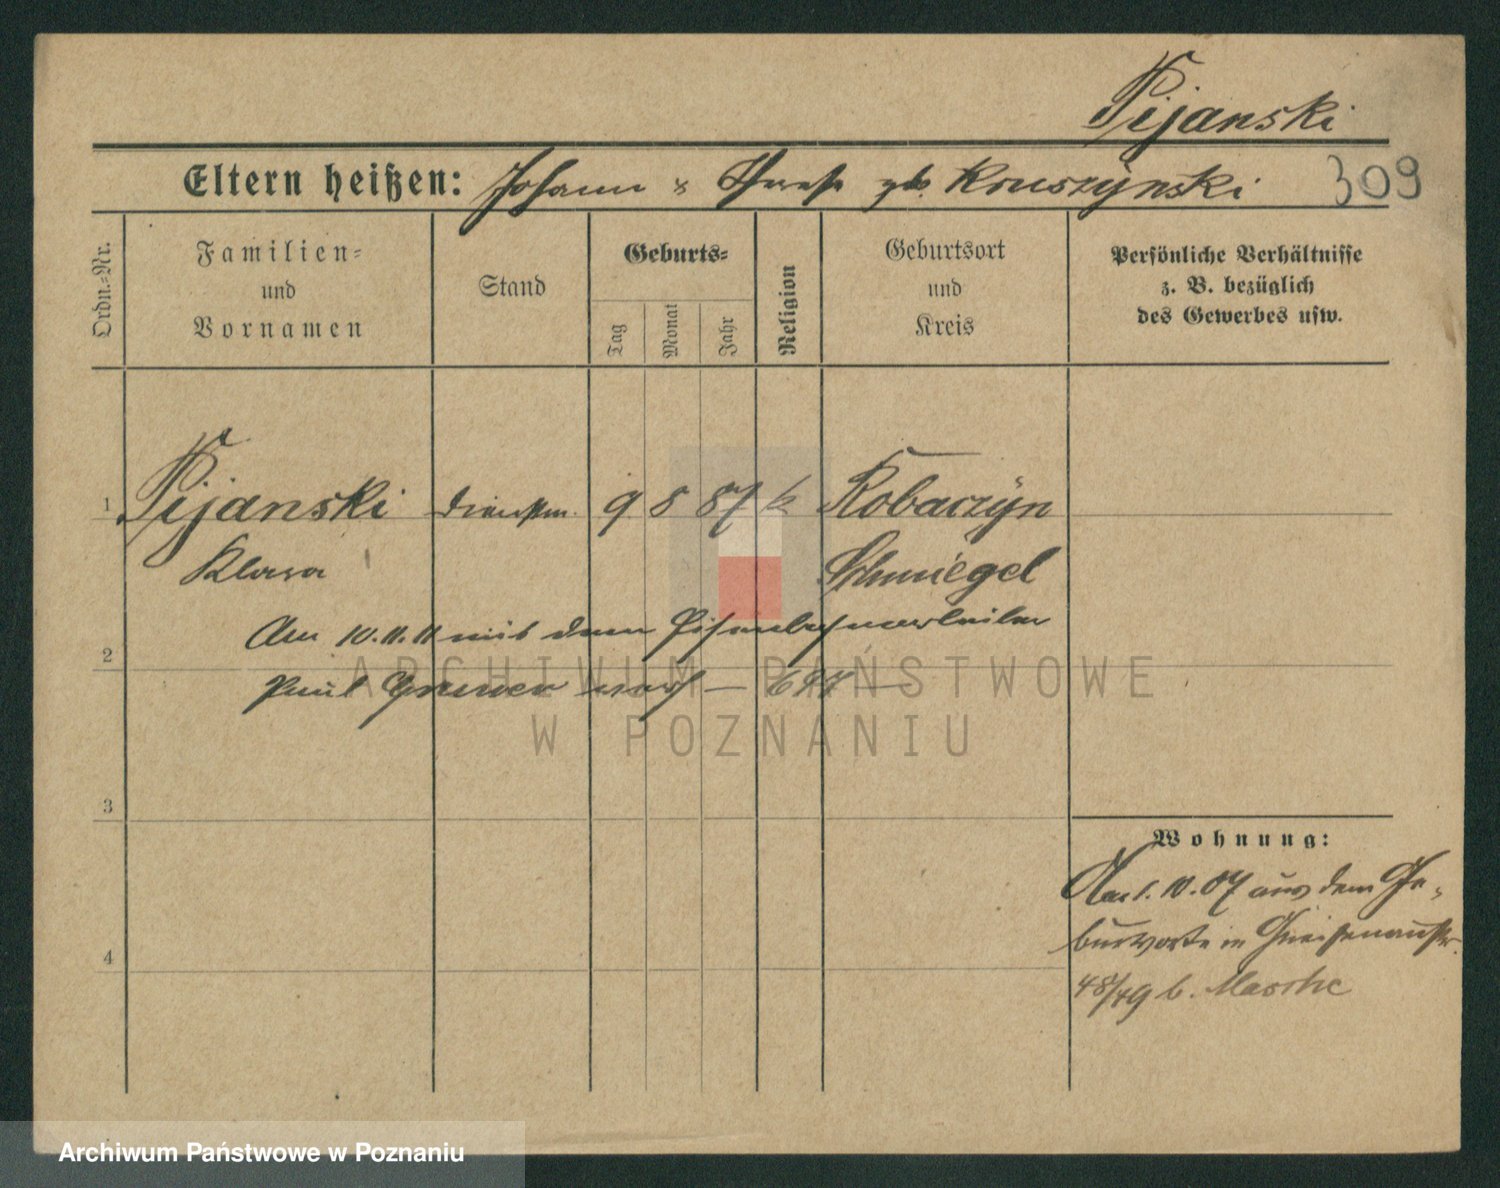 Pijanski
Eltern heißen: Johann & Therese geb. Kruszÿnski 309
Ordn.-Nr.
Familien- und Vornamen
Stand
Geburts-
Tag
Monat
Jahr
Religion
Geburtsort und Kreis
Persönliche Verhältnisse
z. B. bezüglich
des Gewerbes usw.
1 Pijanski Dienstm. 9 8 87 k Robaczÿn
Klara Schmiegel
Am 10.11.11 mit dem Eisenbahnarbeiter
2
Paul verh
ARCHIWUM PAŃSTWOWE
W POZNANIU
3
Wohnung:
Am 1.10.07 aus dem Ge-
burtsorte in Gneisenaustr.
4
48/49 b.
Archiwum Państwowe w Poznaniu